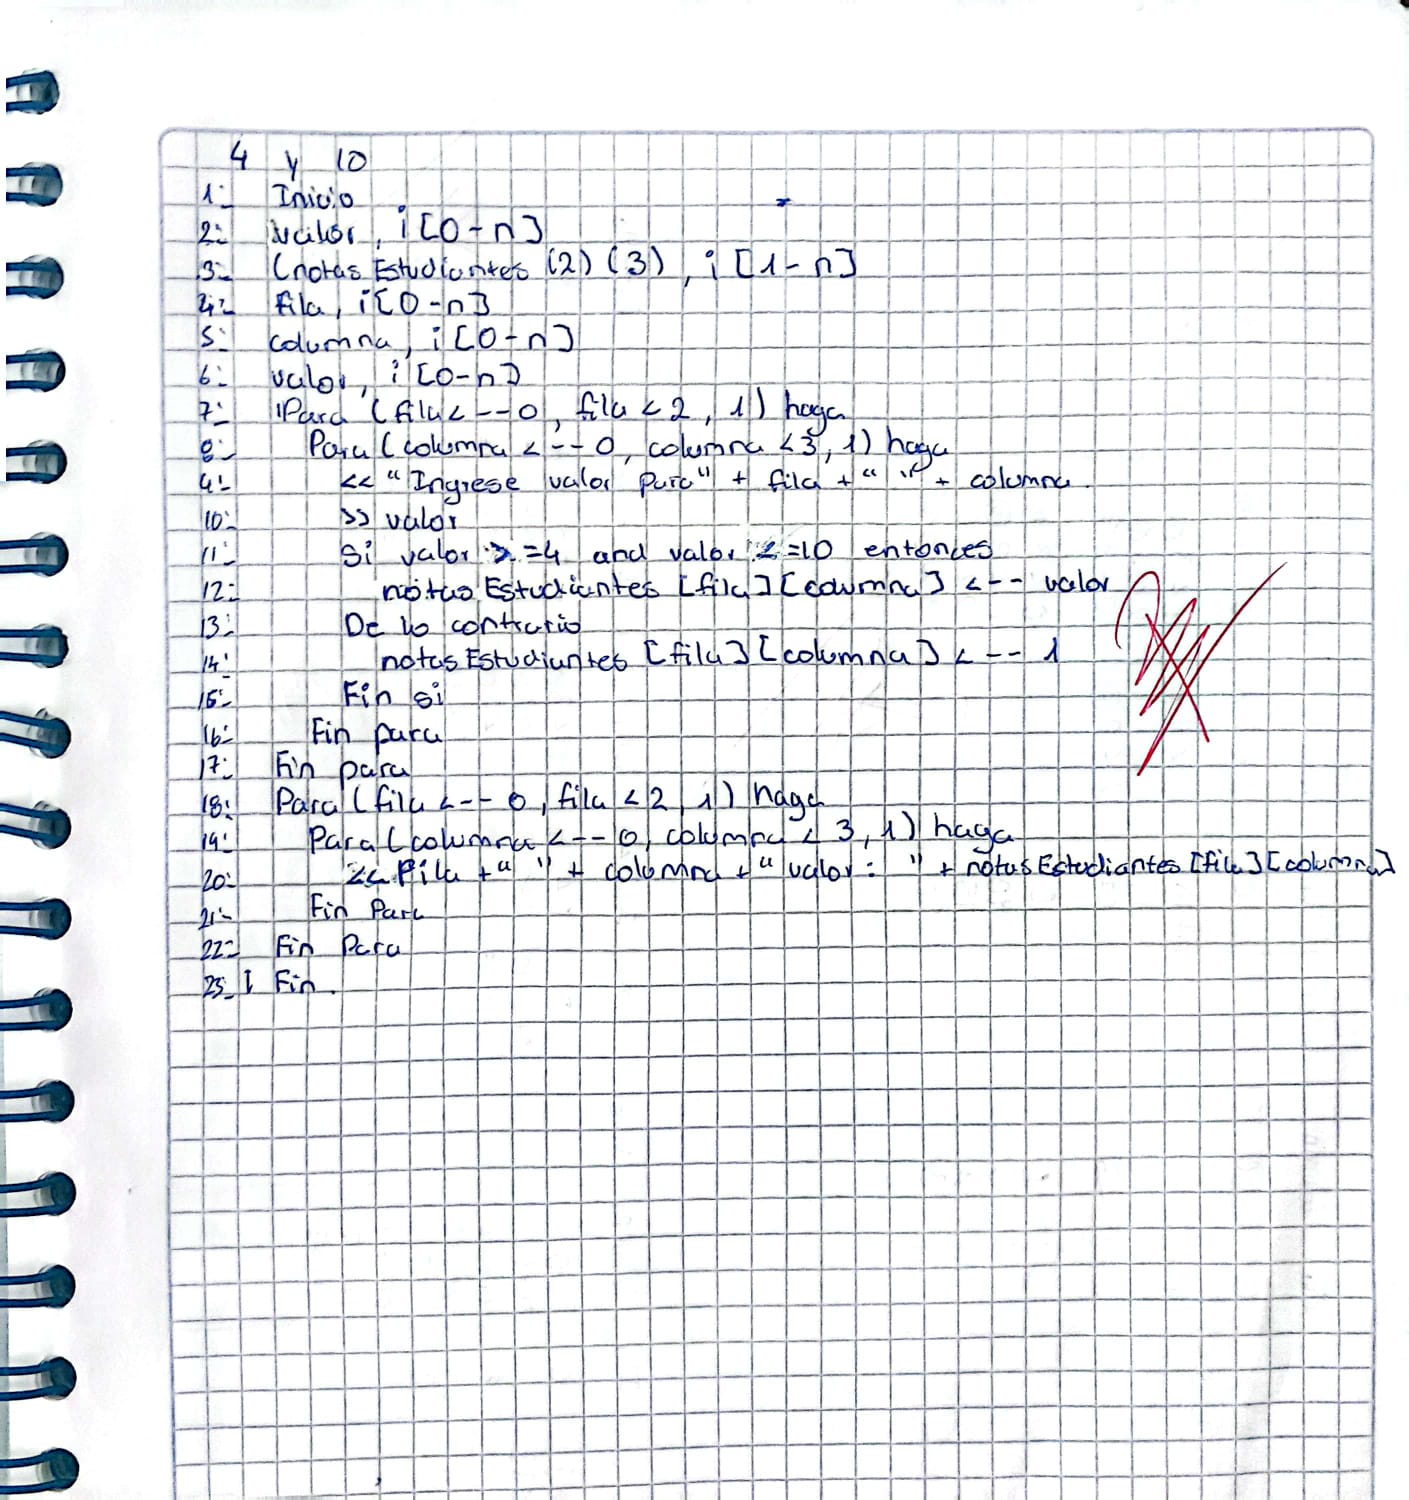 4 y 10
1: Inicio
2: valor, i [0-n]
3: (notas Estudiantes (2) (3), i [1-n]
4: fila, i [0-n]
5: columna, i [0-n]
6: valor, i [0-n]
7: Para (fila <-- 0, fila < 2, 1) haga
8: Para (columna <-- 0, columna < 3, 1) haga
9: << "Ingrese valor para" + fila + " " + columna.
10: >> valor
11: Si valor >=4 and valor <=10 entonces
12: notas Estudiantes [fila] [columna] <-- valor
13: De lo contrario
14: notas Estudiantes [fila] [columna] <-- 1
15: Fin si
16: Fin para
17: Fin para
18: Para (fila <-- 0, fila < 2, 1) haga
19: Para (columna <-- 0, columna < 3, 1) haga
20: << fila + " " + columna + " valor: " + notas Estudiantes [fila] [columna]
21: Fin Para
22: Fin Para
23: Fin.